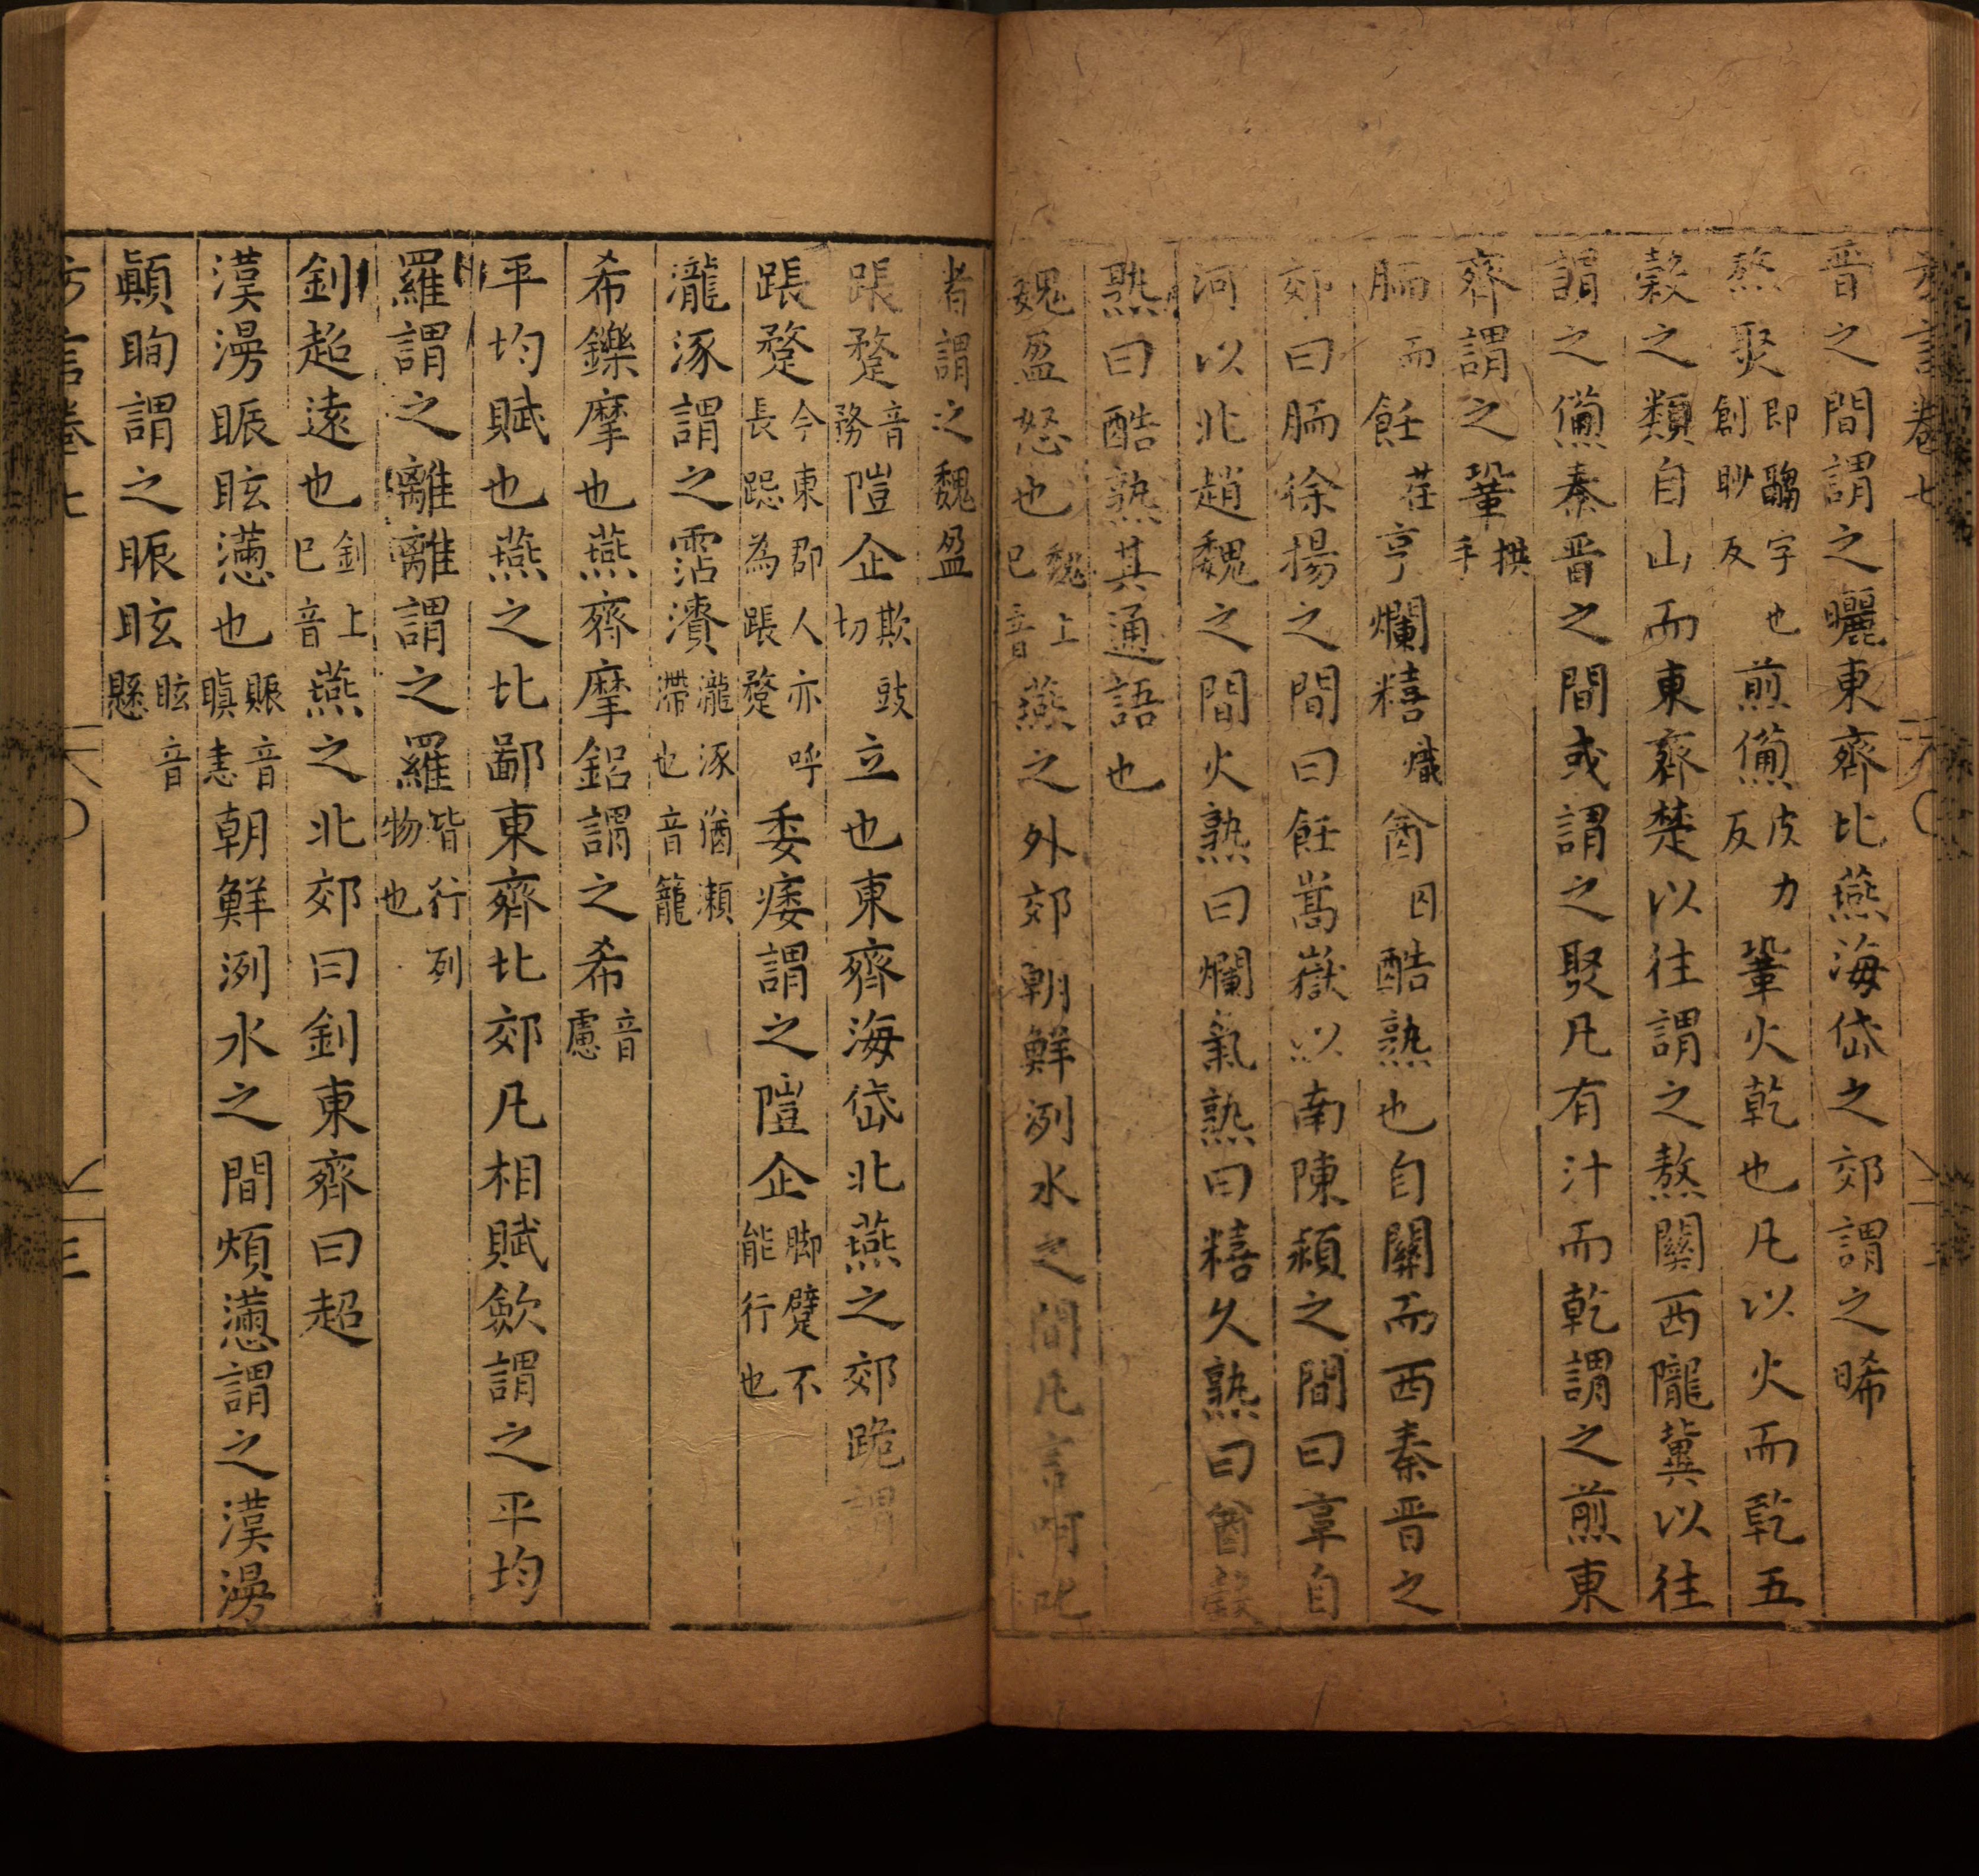 方言卷七
晉之間謂之曬東齊北燕海岱之郊謂之晞
熬㷅即䵅字也創眇反煎㷶皮力反鞏火乾也凡以火而乾五
穀之類自山而東齊楚以往謂之熬關西隴冀以往
謂之㷶秦晉之間或謂之㷅凡有汁而乾謂之煎東
齊謂之鞏拱手
胹而飪荏亨爛糦熾酋囚酷熟也自關而西秦晉之
郊曰胹徐揚之間曰飪嵩嶽以南陳潁之間曰亨自
河以北趙魏之間火熟曰爛氣熟曰糦久熟曰酋穀
熟曰酷熟其通語也
魏盈怒也魏上巳音燕之外郊朝鮮洌水之間凡言呵叱
者謂之魏盈
跟䠞音務隑企欺豉切立也東齊海岱北燕之郊跪謂之
跟䠞今東郡人亦呼長跽為跟䠞委痿謂之隑企脚躄不能行也
瀧涿謂之霑瀆瀧涿猶瀨滯也音籠
希鑠摩也燕齊摩鋁謂之希音慮
平均賦也燕之北鄙東齊北郊凡相賦歛謂之平均
羅謂之離離謂之羅皆行列物也
釗超遠也釗上巳音燕之北郊曰釗東齊曰超
漢漫眂眩懣也賑音瞋恚朝鮮洌水之間煩懣謂之漢漫
顛眴謂之眂眩眩音懸
方言卷七
三